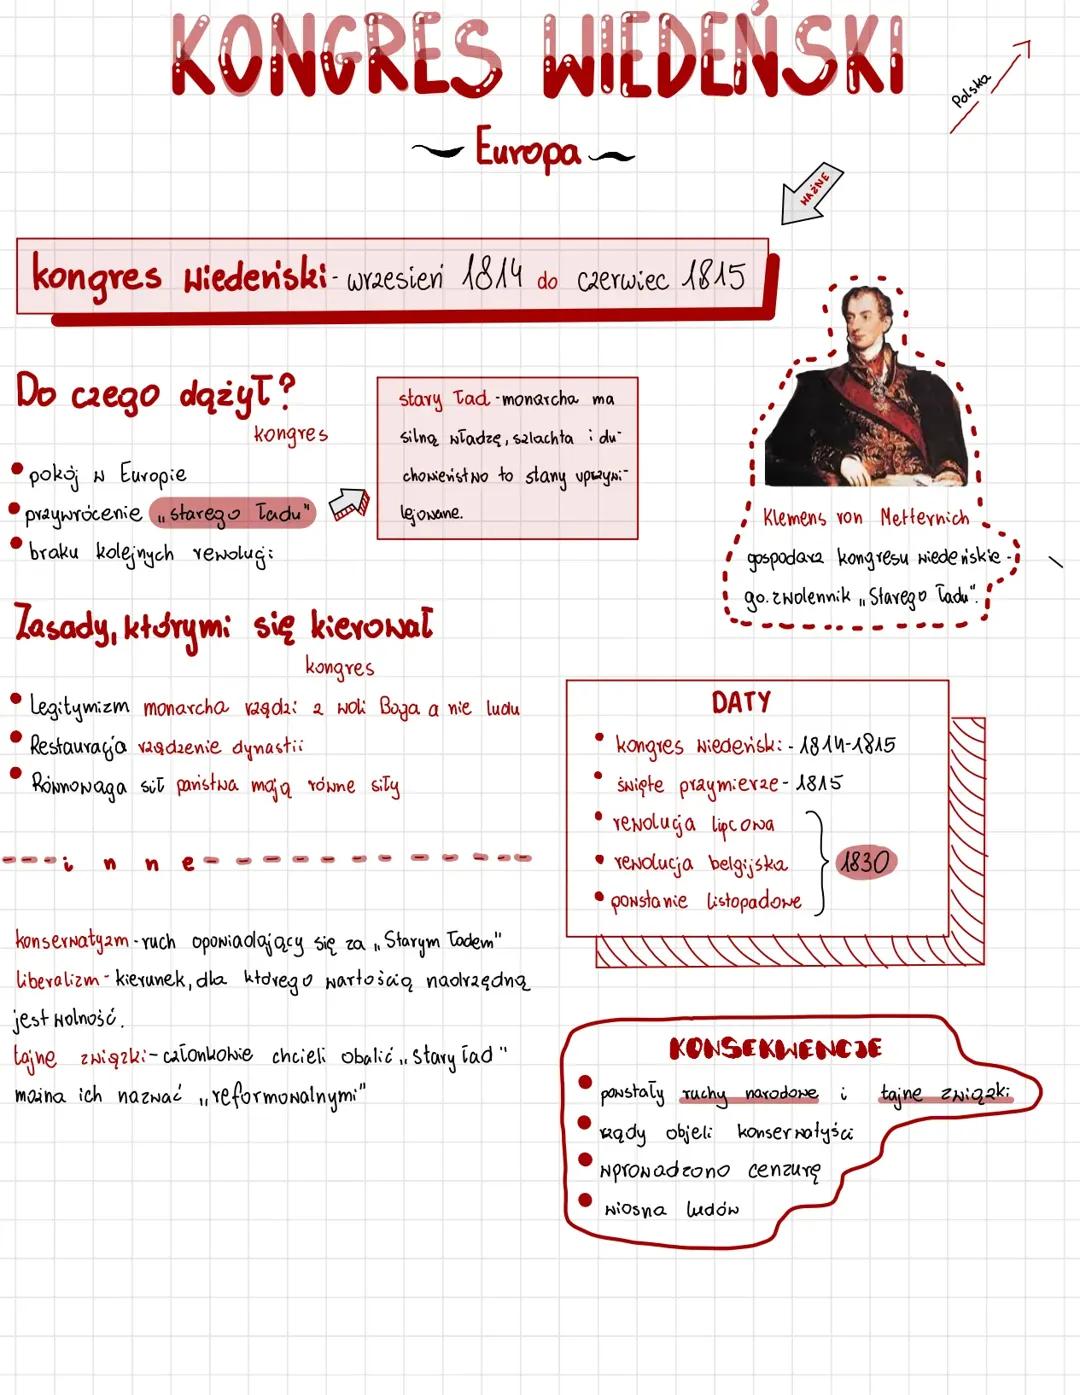 KONGRES WIEDEŃSKI
Polska
Europa
WAŻNE
kongres wiedeński - wrzesień 1814 do czerwiec 1815
Do czego dążył?
kongres
pokój w Europie
przywrócenie „starego ładu"
braku kolejnych rewolucji
stary ład - monarcha ma
silną władzę, szlachta i du-
chowieństwo to stany uprzywi-
lejowane.
Klemens von Metternich
gospodarz kongresu wiedeńskie-
go. zwolennik „Starego ładu".
Zasady, którymi się kierował
kongres
Legitymizm monarcha rządzi z woli Boga a nie ludu
Restauracja rządzenie dynastii
Równowaga sił państwa mają równe siły
DATY
kongres wiedeński - 1814-1815
święte przymierze - 1815
rewolucja lipcowa
rewolucja belgijska
1830
powstanie listopadowe
inne
konserwatyzm - ruch opowiadający się za „Starym ładem"
liberalizm - kierunek, dla którego wartością nadrzędną
jest wolność.
tajne związki - członkowie chcieli obalić „stary ład"
można ich nazwać „reformowalnymi"
KONSEKWENCJE
powstały ruchy narodowe i tajne związki
rządy objeli konserwatyści
wprowadzono cenzurę
wiosna ludów